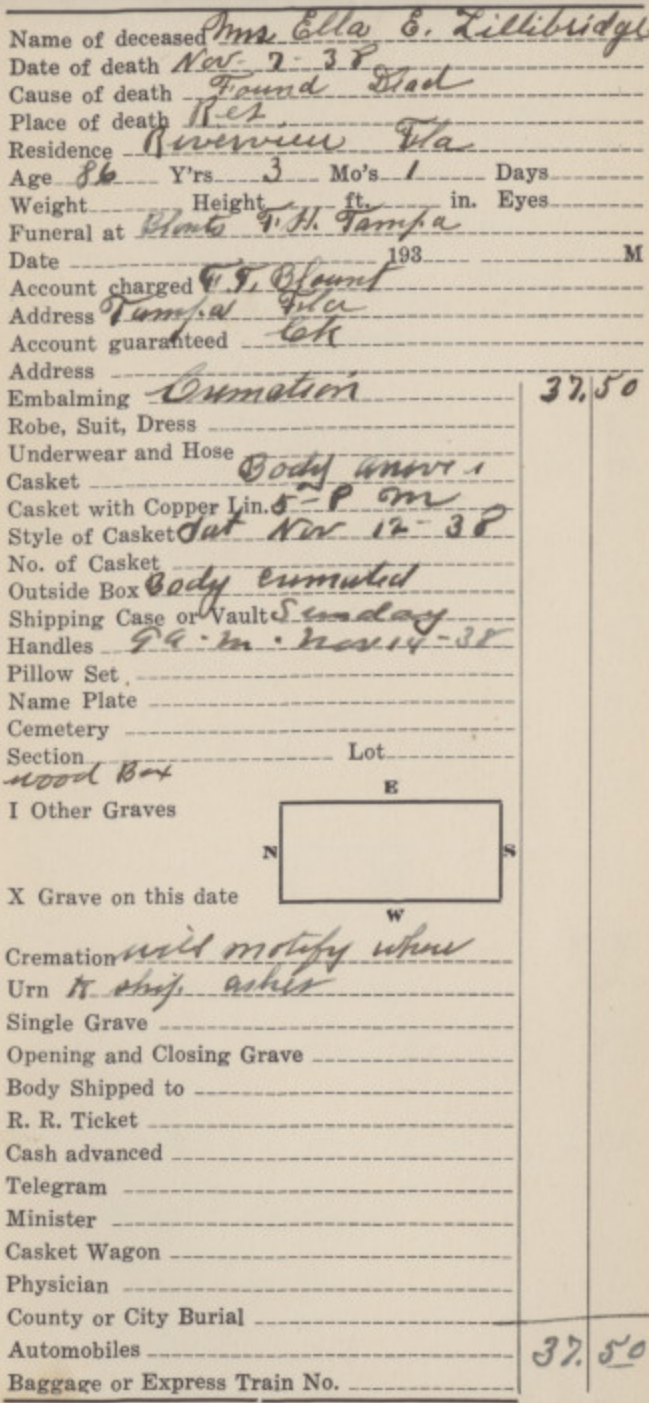 Name of deceased Mrs. Ella E. Lillibridge
Date of death Nov- 7- 38
Cause of death Found Dead
Place of death Res
Residence Riverview Fla
Age 86 Y'rs 3 Mo's 1 Days
Weight Height ft. in. Eyes
Funeral at Blounts F. H. Tampa
Date 193 M
Account charged F. T. Blount
Address Tampa Fla
Account guaranteed Ck
Address
Embalming Cremation 37.50
Robe, Suit, Dress
Underwear and Hose
Casket Body
Casket with Copper Lin. 5- P m
Style of Casket Sat Nov 12- 38
No. of Casket
Outside Box Body cremated
Shipping Case or Vault Sunday
Handles 9 a.m. Nov 14-38
Pillow Set
Name Plate
Cemetery
Section Lot
wood Box
I Other Graves
E
N S
X Grave on this date
W
Cremation will notify where
Urn to ship ashes
Single Grave
Opening and Closing Grave
Body Shipped to
R. R. Ticket
Cash advanced
Telegram
Minister
Casket Wagon
Physician
County or City Burial
Automobiles 37.50
Baggage or Express Train No.